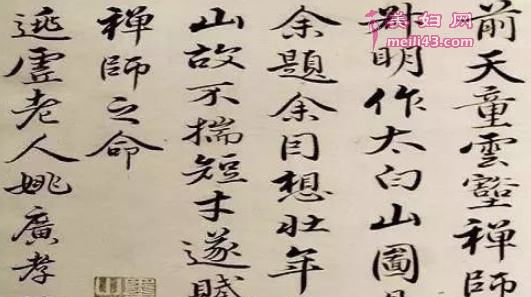 美妇网
meili43.com
前天童雲壑禪師
叔明作太白山圖
余題余因想壯年
山故不揣短才遂賦
禪師之命
逃虛老人姚廣孝